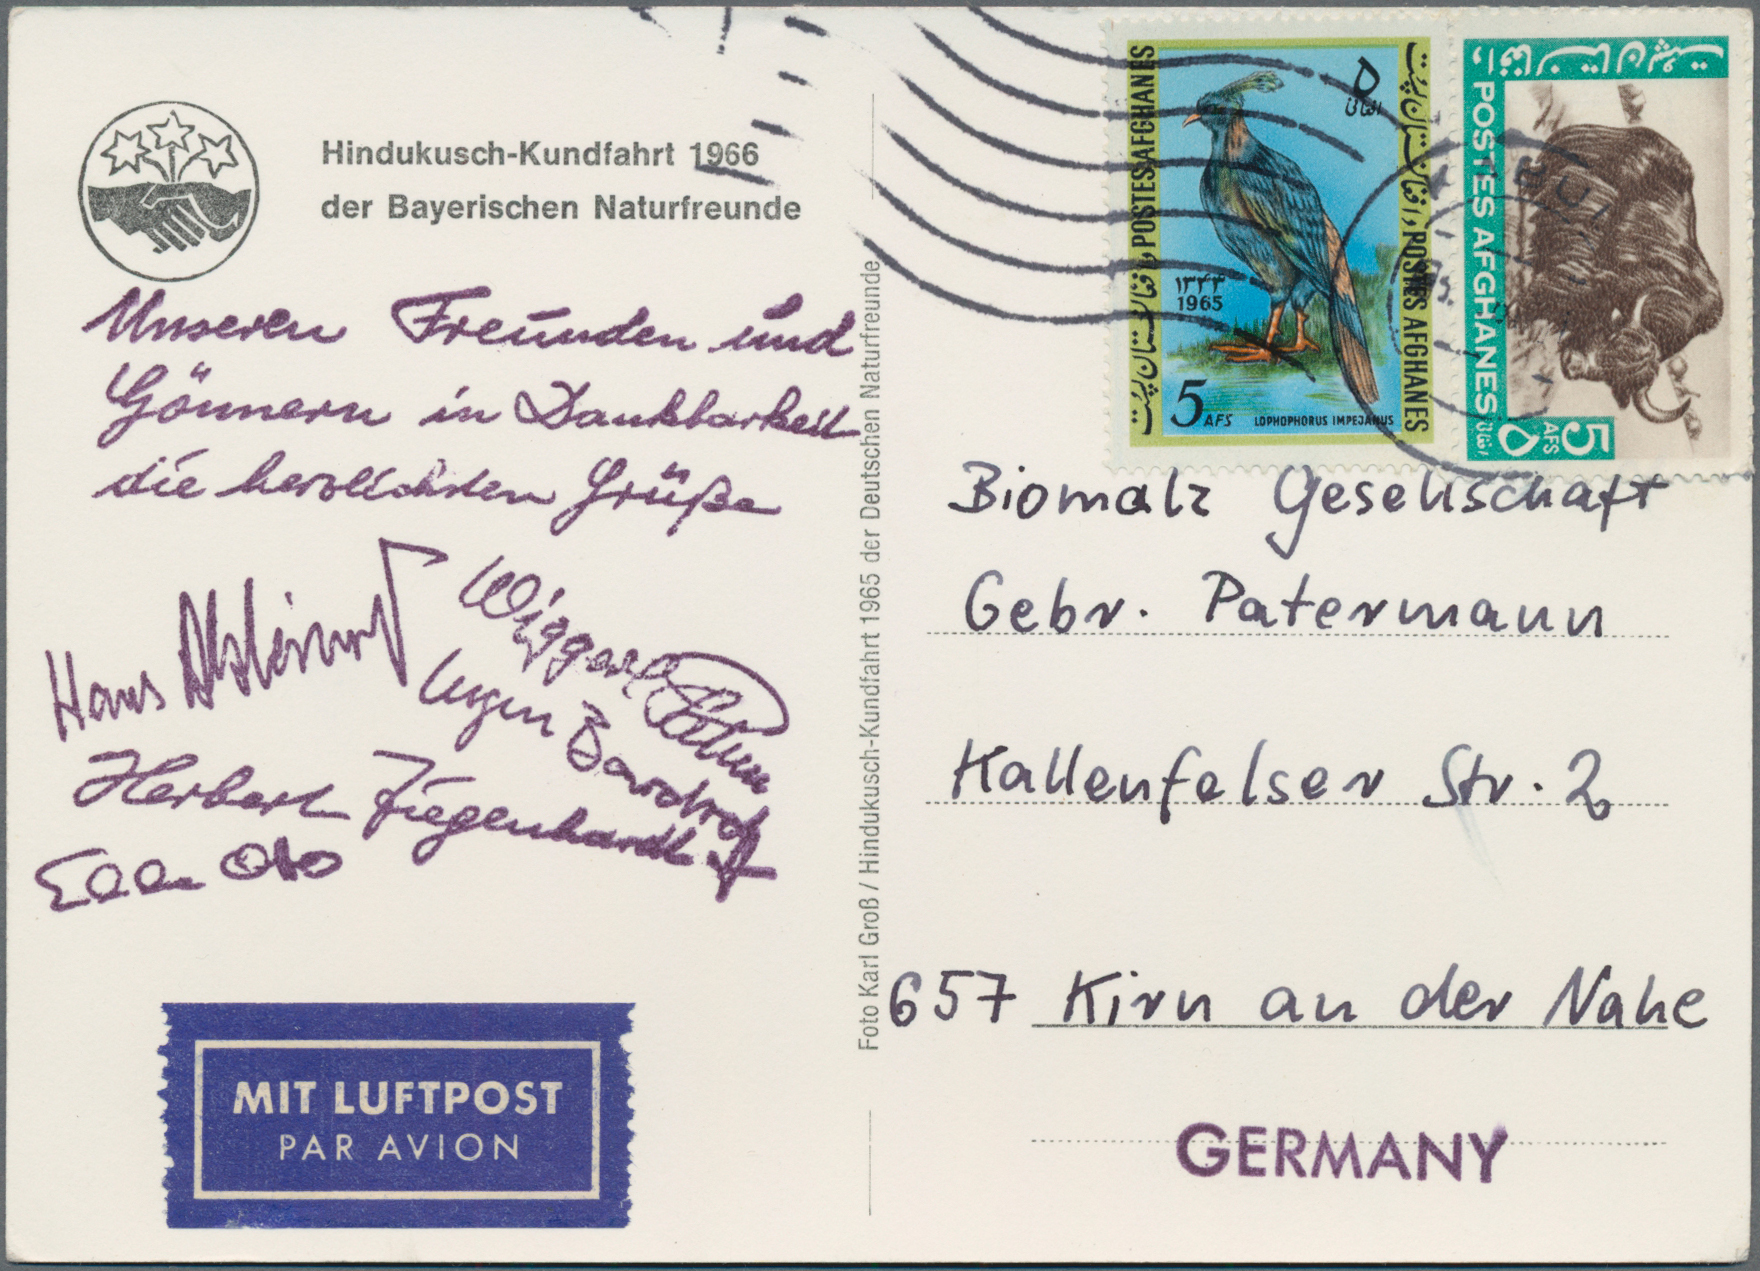 Hindukusch-Kundfahrt 1966
der Bayerischen Naturfreunde
Unseren Freunden und
Gönnern in Dankbarkeit
die herzlichsten Grüße
Hans
Wiggerl
Eugen
Herbert Ziegenhardt
Otto
MIT LUFTPOST
PAR AVION
Foto Karl Groß / Hindukusch-Kundfahrt 1965 der Deutschen Naturfreunde
POSTES AFGHANES
افغانستان پست
POSTES AFGHANES
افغانستان پست
۵
افغانی
۱۳۴۴
1965
5 AFS
LOPHOPHORUS IMPEJANUS
افغانستان پست
POSTES AFGHANES
۵
5
AFS
Biomalz Gesellschaft
Gebr. Patermann
Kallenfelser Str. 2
657 Kirn an der Nahe
GERMANY